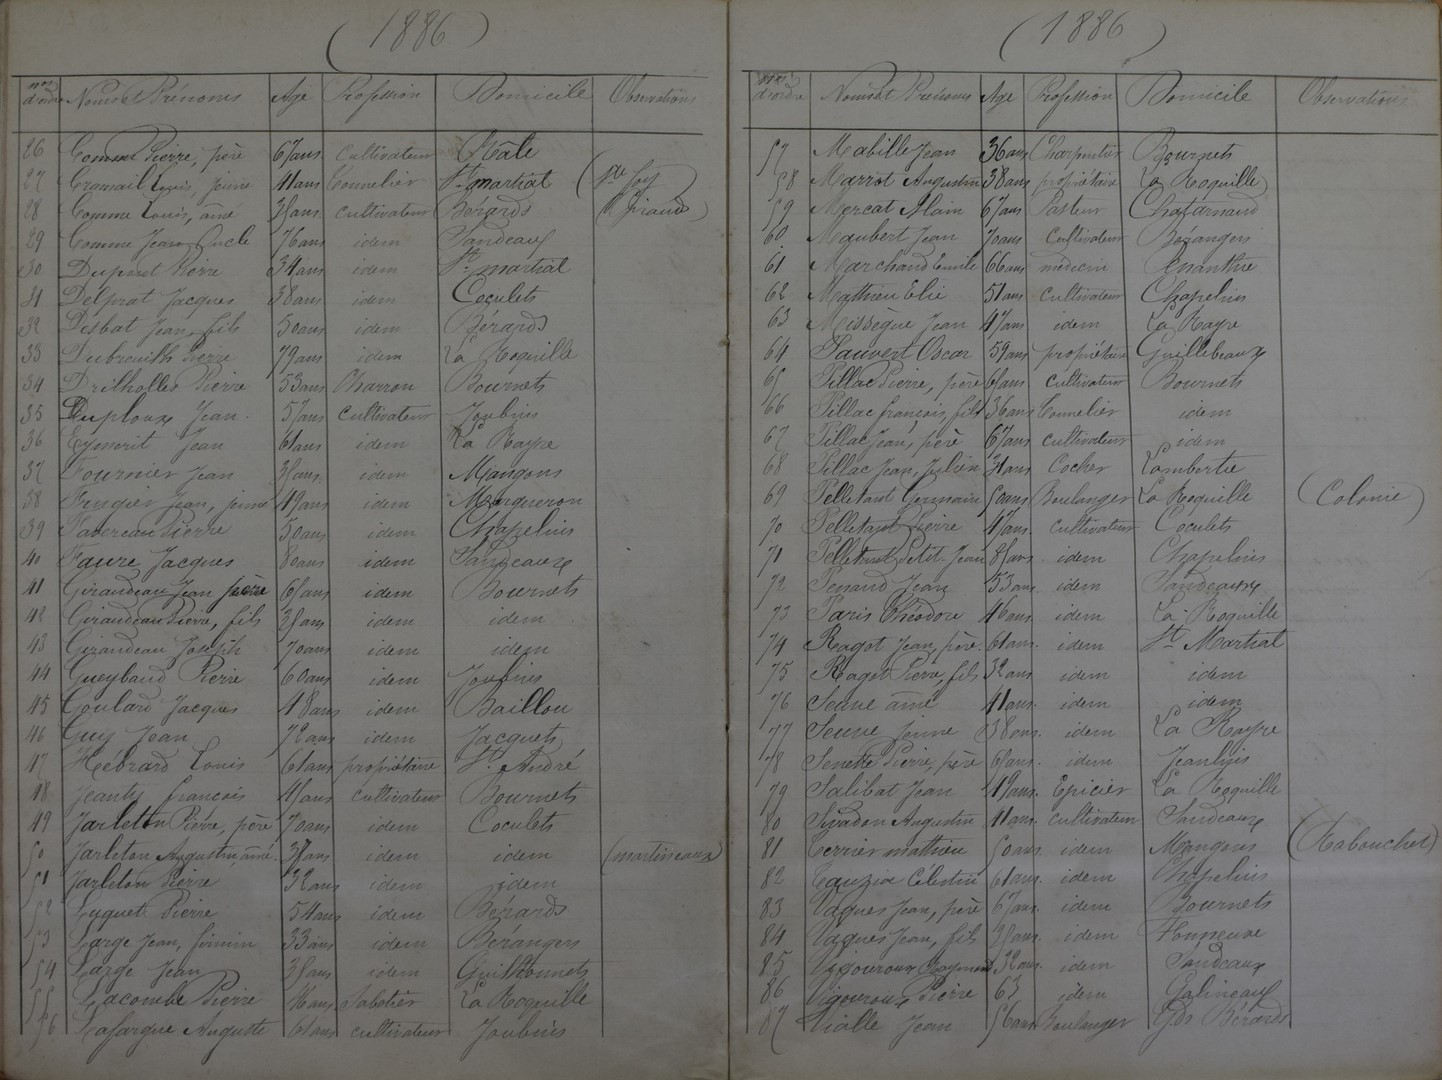 (1886)
nos d'ordre Noms et Prénoms Age Profession Domicile Observations
26 Comme Pierre, père 67 ans cultivateur
27 Cramail Louis, jeune 41 ans Tonnelier St martial (Ste foy
28 Comme Louis, ainé 35 ans cultivateur Bérards Giraud)
29 Comme Jean, Oncle 76 ans idem Sandeaux
30 Pierre 34 ans idem St martial
31 Delprat Jacques 38 ans idem Coculets
32 Desbat Jean, fils 50 ans idem Bérards
33 Dubreuilh Pierre 79 ans idem La Roquille
34 Drilholles Pierre 53 ans Charron Bournets
35 Duploux Jean 57 ans cultivateur Joubins
36 Eymerit Jean 61 ans idem La Rayre
37 Fournier Jean 35 ans idem Mangons
38 Frugier Jean, jeune 49 ans idem
39 Favereau Pierre 50 ans idem Chapelins
40 Faure Jacques 80 ans idem Sandeaux
41 Giraudeau Jean père 65 ans idem Bournets
42 Giraudeau Pierre, fils 35 ans idem idem
43 Giraudeau Joseph 70 ans idem idem
44 Gueybaud Pierre 60 ans idem Joubins
45 Goulard Jacques 48 ans idem Baillou
46 Guy Jean 72 ans idem Jacquets
47 Hébrard Louis 61 ans propriétaire St. André
48 Jeanty françois 45 ans cultivateur Bournets
49 Jarleton Pierre, père 70 ans idem Coculets
50 Jarleton Augustin, ainé 37 ans idem idem (martineaux)
51 Jarleton Pierre 32 ans idem idem
52 Luquet Pierre 54 ans idem Bérards
53 Large Jean, firmin 33 ans idem Bérangers
54 Large Jean 35 ans idem Guilhonnets
55 Lacombe Pierre 46 ans Sabotier La Roquille
56 Lafargue Auguste 61 ans cultivateur Joubins
(1886)
nos d'ordre Noms et Prénoms Age Profession Domicile Observations
57 Mabille Jean 36 ans Charpentier Bournets
58 Marrot Augustin 38 ans propriétaire La Roquille
59 Mercat Alain 67 ans Pasteur Chatarnaud
60 Maubert Jean 70 ans Cultivateur Bérangers
61 Marchand Emile 66 ans médecin
62 Mathieu Elie 51 ans cultivateur Chapelins
63 Missègue Jean 47 ans idem La Rayre
64 Pauvert Oscar 59 ans propriétaire Guillebeaux
65 Pillac Pierre, père 65 ans cultivateur Bournets
66 Pillac françois, fils 36 ans Tonnelier idem
67 Pillac Jean, père 67 ans cultivateur idem
68 Pillac Jean, Julien 31 ans Cocher Lambertie
69 Pelletant Germain 50 ans Boulanger La Roquille (Colonie)
70 Pelletant Pierre 47 ans cultivateur Coculets
71 Pelletant Petit Jean 85 ans idem Chapelins
72 Penaud Jean 53 ans idem Sandeaux
73 Paris Théodore 46 ans idem La Roquille
74 Ragot Jean, père 61 ans idem St Martial
75 Ragot Pierre, fils 32 ans idem idem
76 Seuve ainé 41 ans idem idem
77 Seuve jeune 38 ans idem La Rayre
78 Senette Pierre, père 65 ans idem
79 Salibat Jean 49 ans Epicier La Roquille
80 Sivadon Augustin 41 ans cultivateur Sandeaux
81 Terrier mathieu 50 ans idem Mangons (Rabouchet)
82 Tauzia Célestin 61 ans idem Chapelins
83 Vaques Jean, père 67 ans idem Bournets
84 Vaques Jean, fils 35 ans idem
85 Vigouroux Raymond 32 ans idem Sandeaux
86 Vigouroux Pierre 63 idem Galineaux
87 Vialle Jean 56 ans Boulanger Gds Bérards